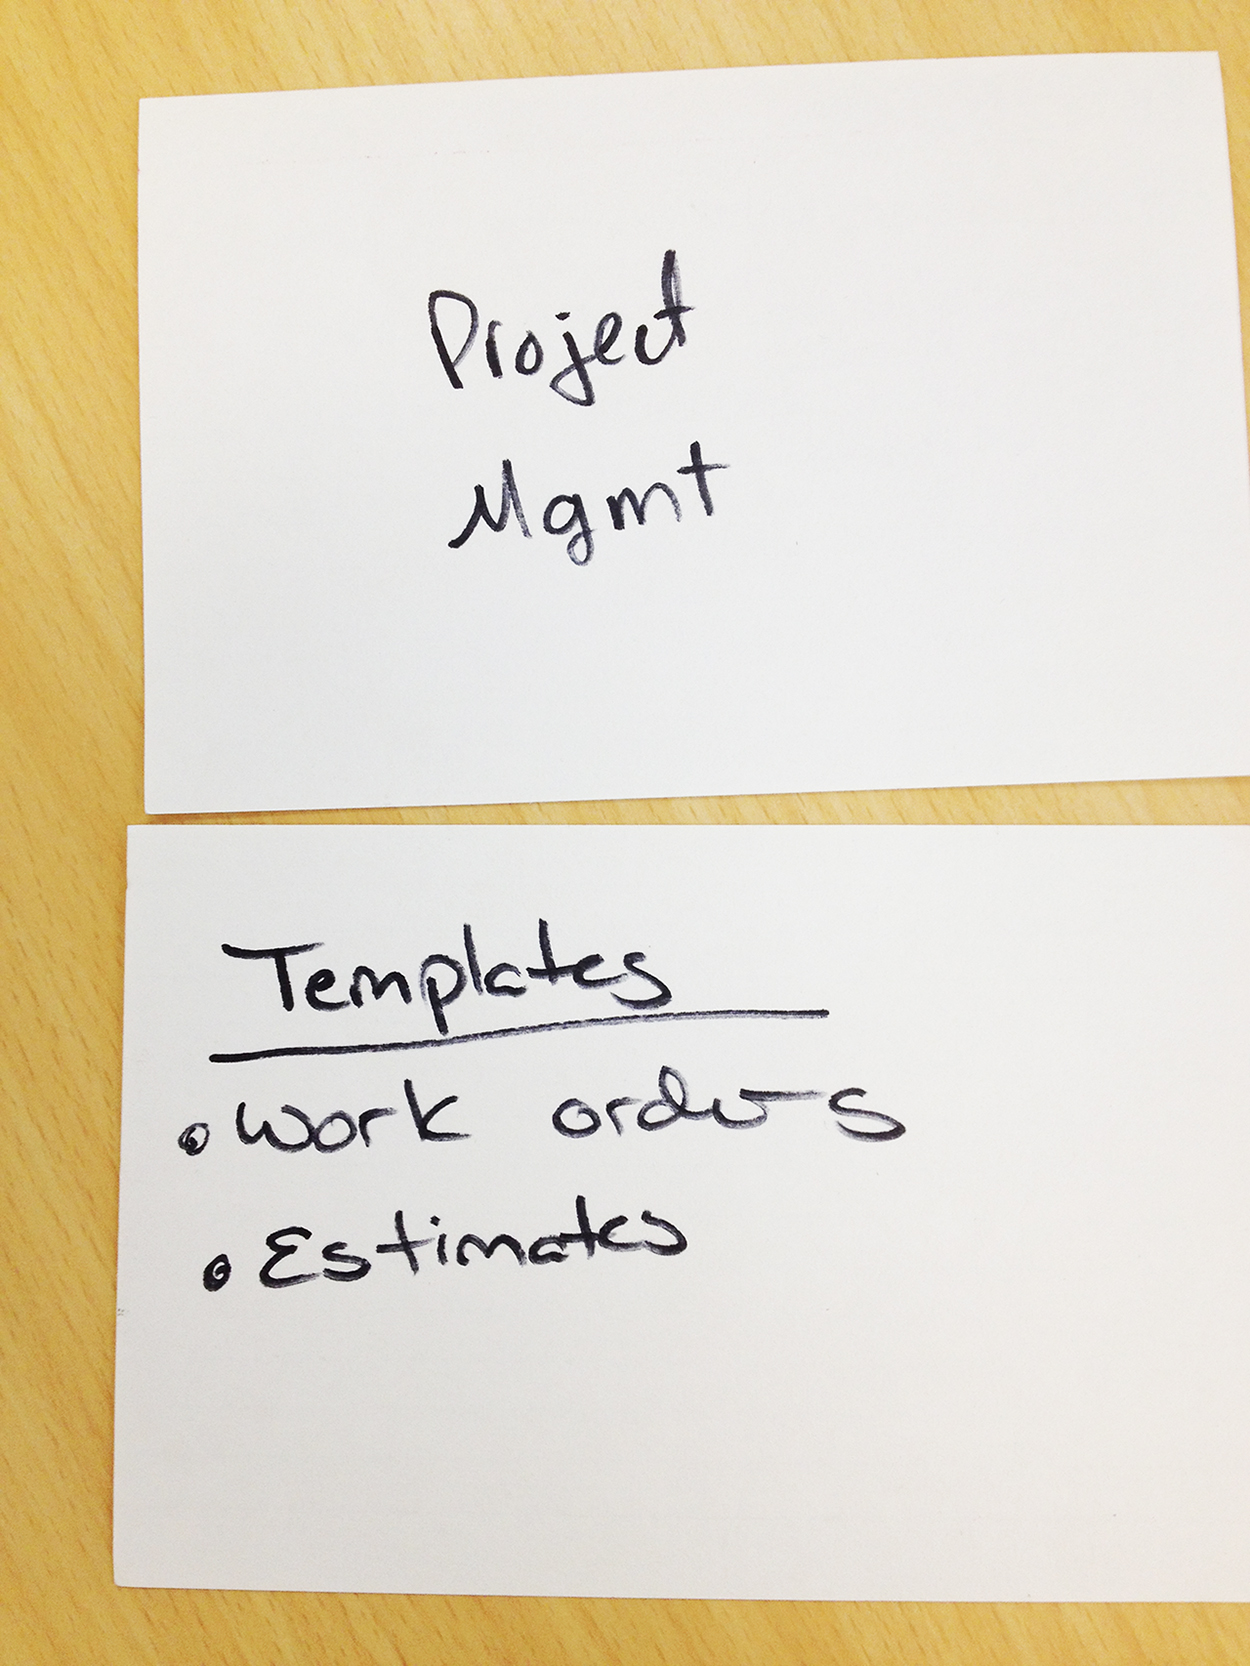 Project
Mgmt
Templates
• Work orders
• Estimates